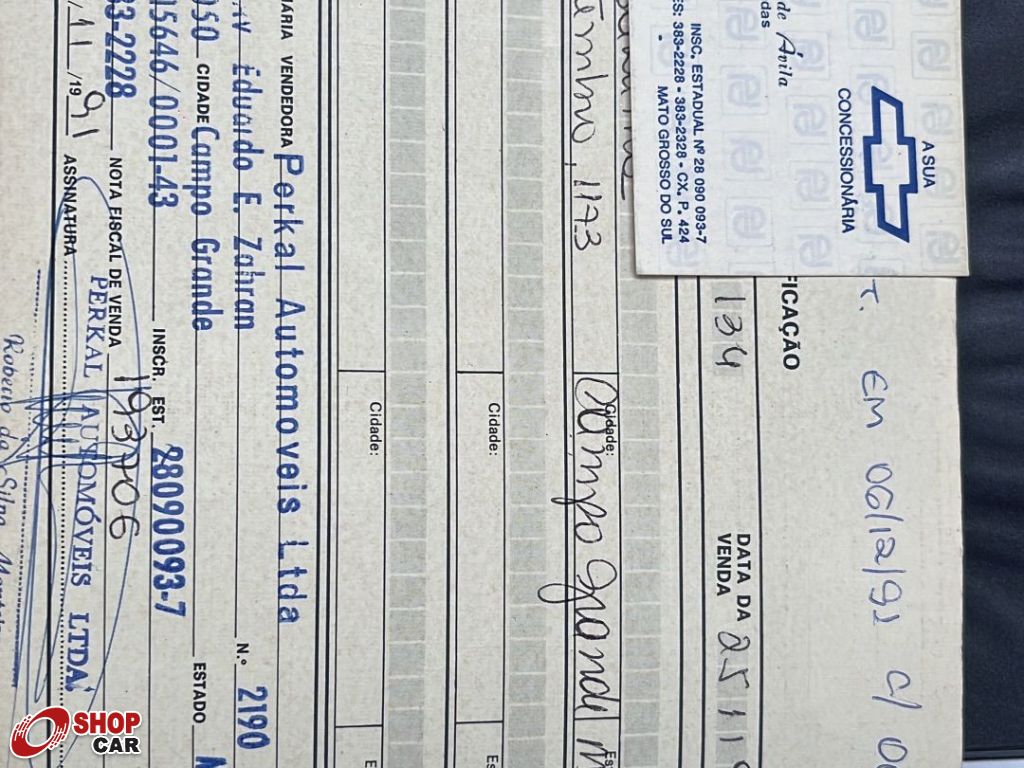 A SUA
CONCESSIONÁRIA
de Ávila
das
INSC. ESTADUAL Nº 28 090 093-7
ES: 383-2228 - 383-2328 - CX. P. 424
MATO GROSSO DO SUL
EM 06/12/91 c/
FICAÇÃO
134
DATA DA
VENDA 25 11 9
1173
Cidade: Campo Grande
Cidade:
Cidade:
IÁRIA VENDEDORA Perkal Automoveis Ltda
AV Eduardo E. Zahran N.º 2190
050 CIDADE Campo Grande ESTADO M
15646/0001-43 INSCR. EST. 28090093-7
33-2228 NOTA FISCAL DE VENDA 193706
/11/1991 PERKAL AUTOMÓVEIS LTDA.
ASSINATURA
Roberto da Silva
SHOP
CAR